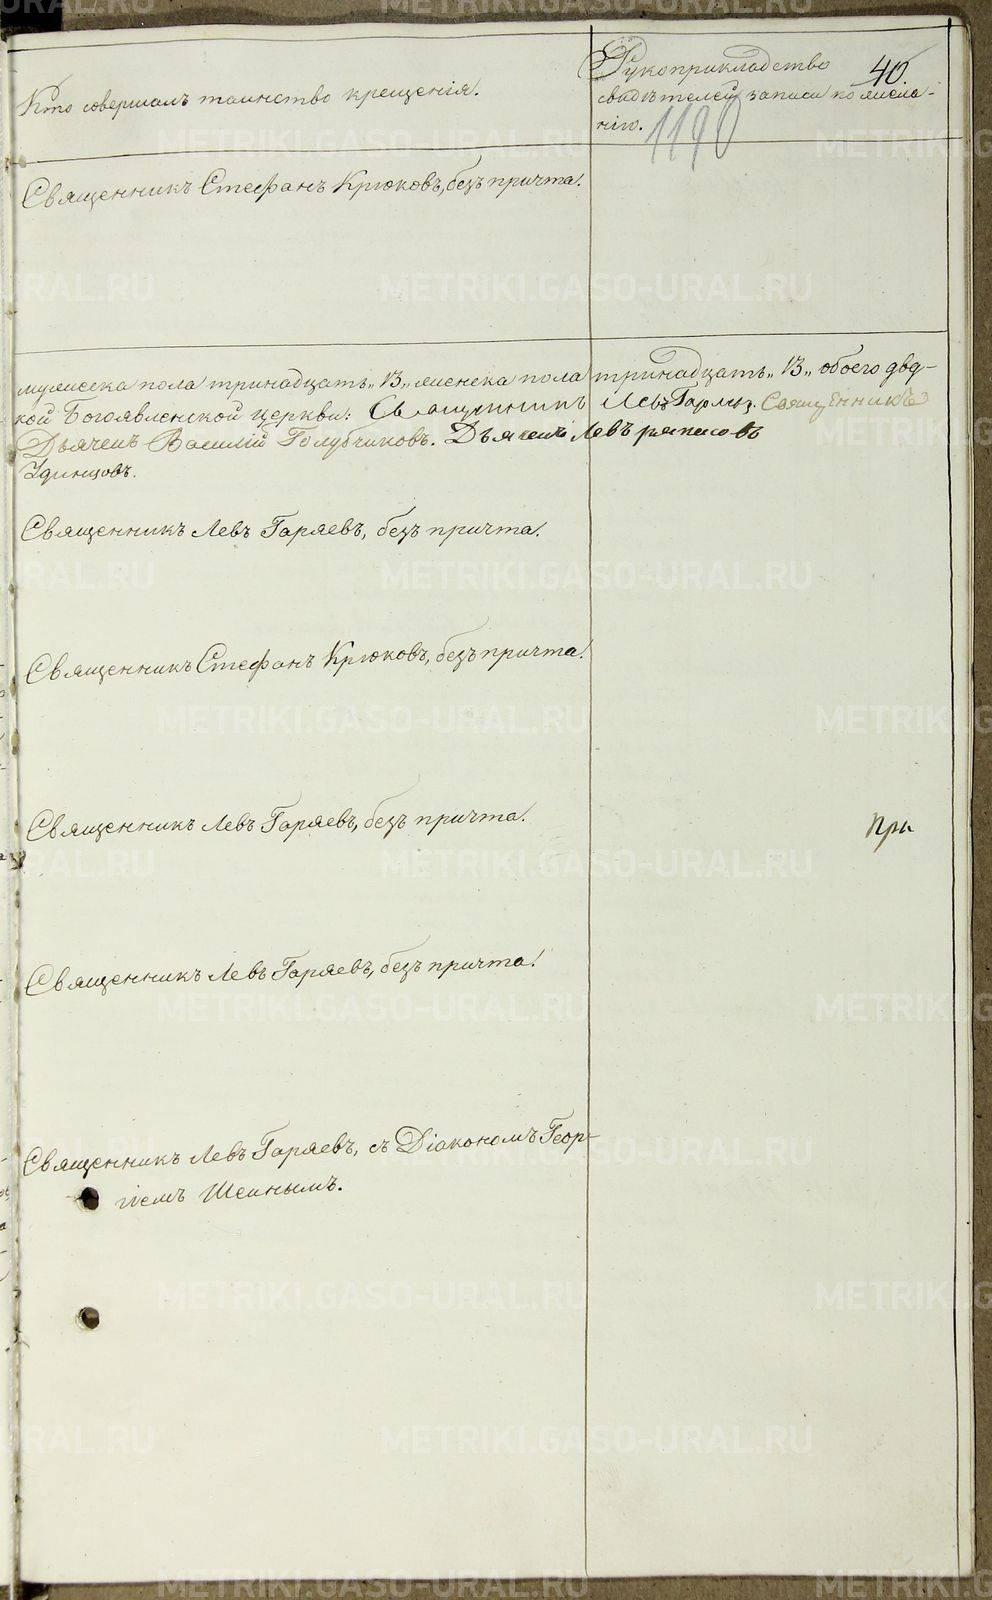 Кто совершалъ таинство крещенія.
Рукоприкладство
свидѣтелей записи по жела-
нію.
40.
1190
Священникъ Стефанъ Крюковъ, безъ причта.
мужеска пола тринадцать „13„ женска пола тринадцать „13„ обоего двад-
кой Богоявленской церкви: Священникъ Левъ Гаряев. Священникъ
Дьячекъ Василій Голубчиковъ. Дьячекъ Левъ
Удинцовъ.
Священникъ Левъ Гаряевъ, безъ причта.
Священникъ Стефанъ Крюковъ, безъ причта.
Священникъ Левъ Гаряевъ, безъ причта.
При
Священникъ Левъ Гаряевъ, безъ причта.
Священникъ Левъ Гаряевъ, съ Діакономъ Геор-
гіемъ
METRIKI.GASO-URAL.RU